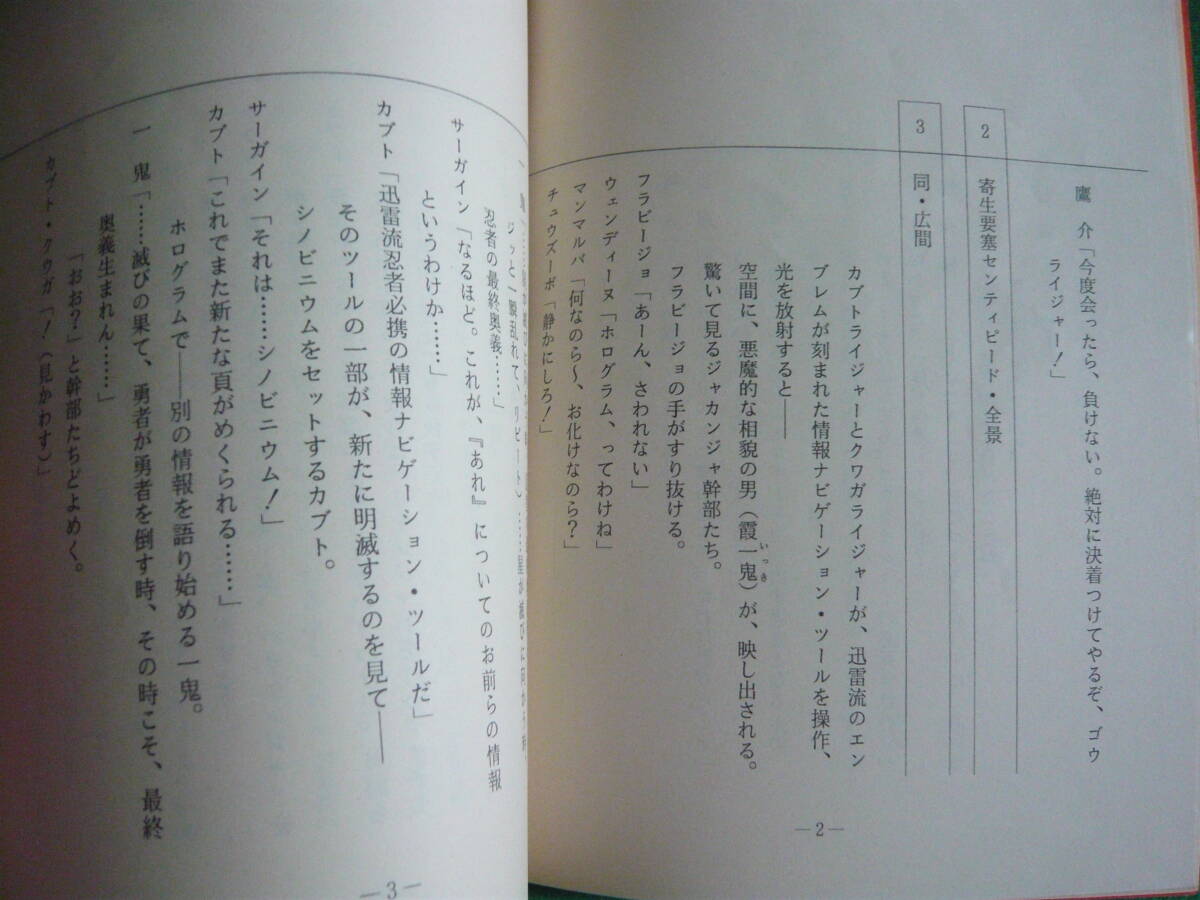 鷹　介「今度会ったら、負けない。絶対に決着つけてやるぞ、ゴウ
ライジャー！」
2　寄生要塞センティピード・全景
3　同・広間
カブトライジャーとクワガライジャーが、迅雷流のエン
ブレムが刻まれた情報ナビゲーション・ツールを操作、
光を放射すると――
空間に、悪魔的な相貌の男（霞一鬼）が、映し出される。
いっき
驚いて見るジャカンジャ幹部たち。
フラビージョ「あーん、さわれない」
フラビージョの手がすり抜ける。
ウェンディーヌ「ホログラム、ってわけね」
マンマルバ「何なのら〜、お化けなのら？」
チュウズーボ「静かにしろ！」
―2―
ジッと一瞬乱れて、リピート）
忍者の最終奥義……」
サーガイン「なるほど。これが、『あれ』についてのお前らの情報
というわけか……」
カブト「迅雷流忍者必携の情報ナビゲーション・ツールだ」
そのツールの一部が、新たに明滅するのを見て――
シノビニウムをセットするカブト。
サーガイン「それは………シノビニウム！」
カブト「これでまた新たな頁がめくられる……」
ホログラムで――別の情報を語り始める一鬼。
一　鬼「……滅びの果て、勇者が勇者を倒す時、その時こそ、最終
奥義生まれん……」
「おお？」と幹部たちどよめく。
カブト・クワガ「！（見かわす）」
―3―